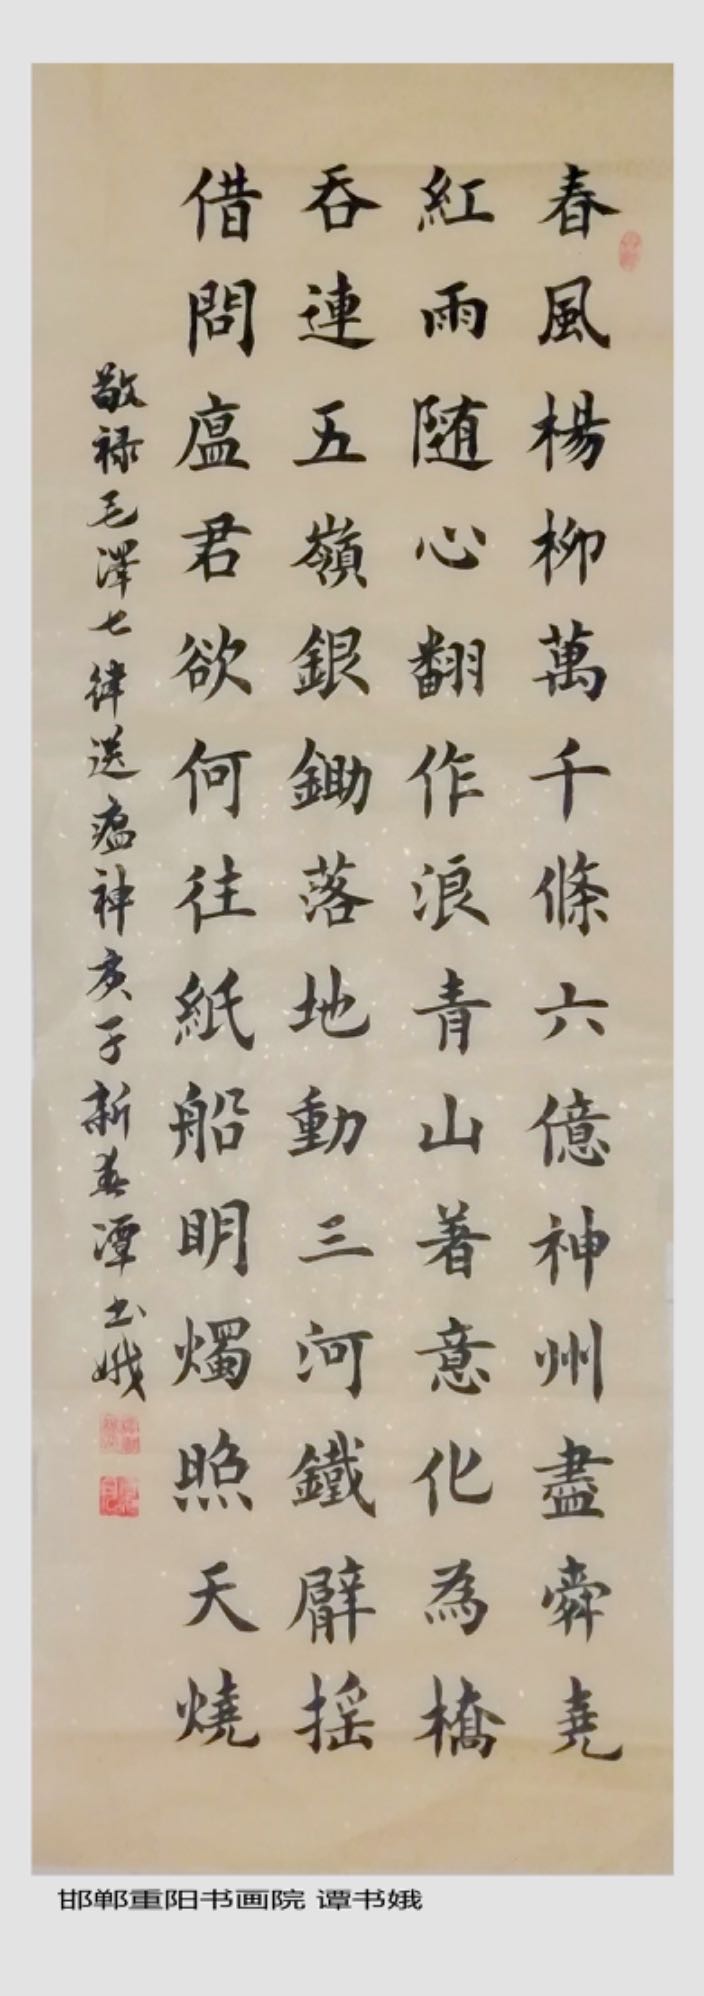 春風楊柳萬千條六億神州盡舜堯
紅雨随心翻作浪青山着意化為橋
吞連五嶺銀鋤落地動三河鐵臂摇
借問瘟君欲何往紙船明燭照天燒
敬禄毛澤七律送瘟神庚子新春譚书娥
邯郸重阳书画院 谭书娥